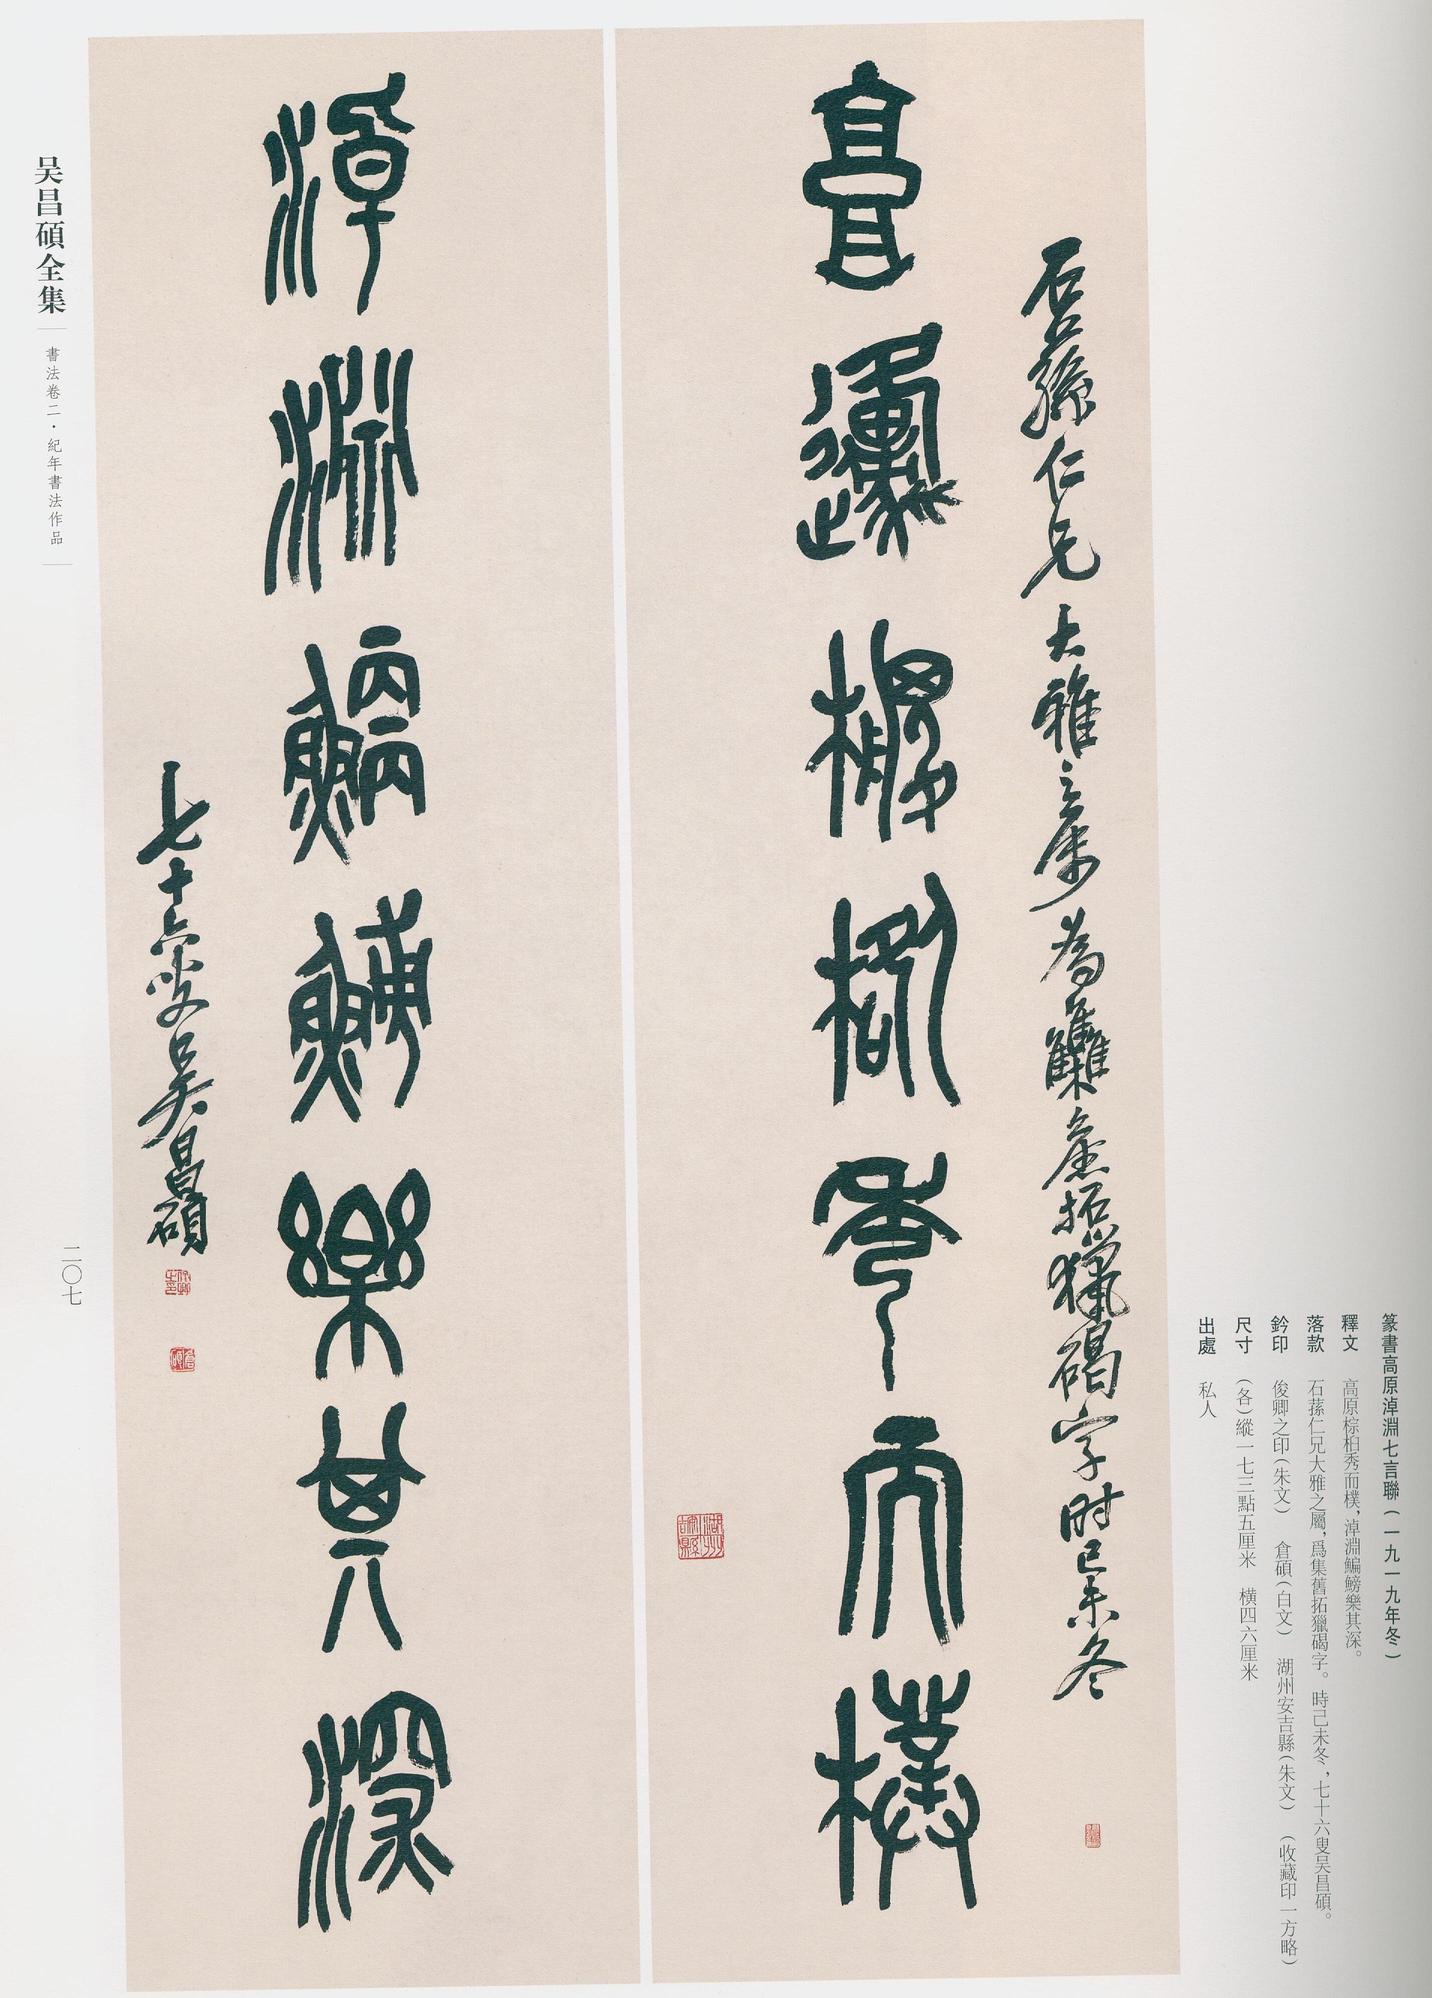 高原棕柏秀而樸
石蓀仁兄大雅之屬為集舊拓獵碣字時己未冬
淖淵鯿鰟樂其深
七十六叟吳昌碩
篆書高原淖淵七言聯(一九一九年冬)
釋文 高原棕柏秀而樸,淖淵鯿鰟樂其深。
落款 石蓀仁兄大雅之屬,爲集舊拓獵碣字。時己未冬,七十六叟吴昌碩。
鈐印 俊卿之印(朱文) 倉碩(白文) 湖州安吉縣(朱文) (收藏印一方略)
尺寸 (各)縱一七三點五厘米 橫四六厘米
出處 私人
吴昌碩全集
書法卷二·紀年書法作品
二〇七
俊卿之印
倉碩
湖州安吉縣